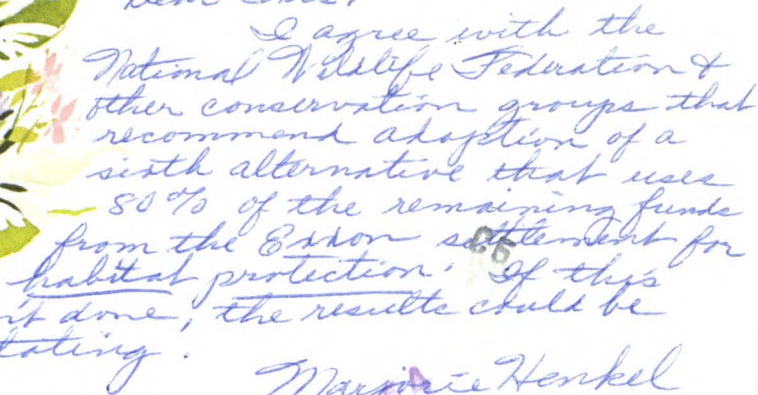 I agree with the
National Wildlife Federation &
other conservation groups that
recommend adoption of a
sixth alternative that uses
80% of the remaining funds
from the Exxon settlement for
habitat protection. If this
n't done, the results could be
tating.
Marjorie Henkel